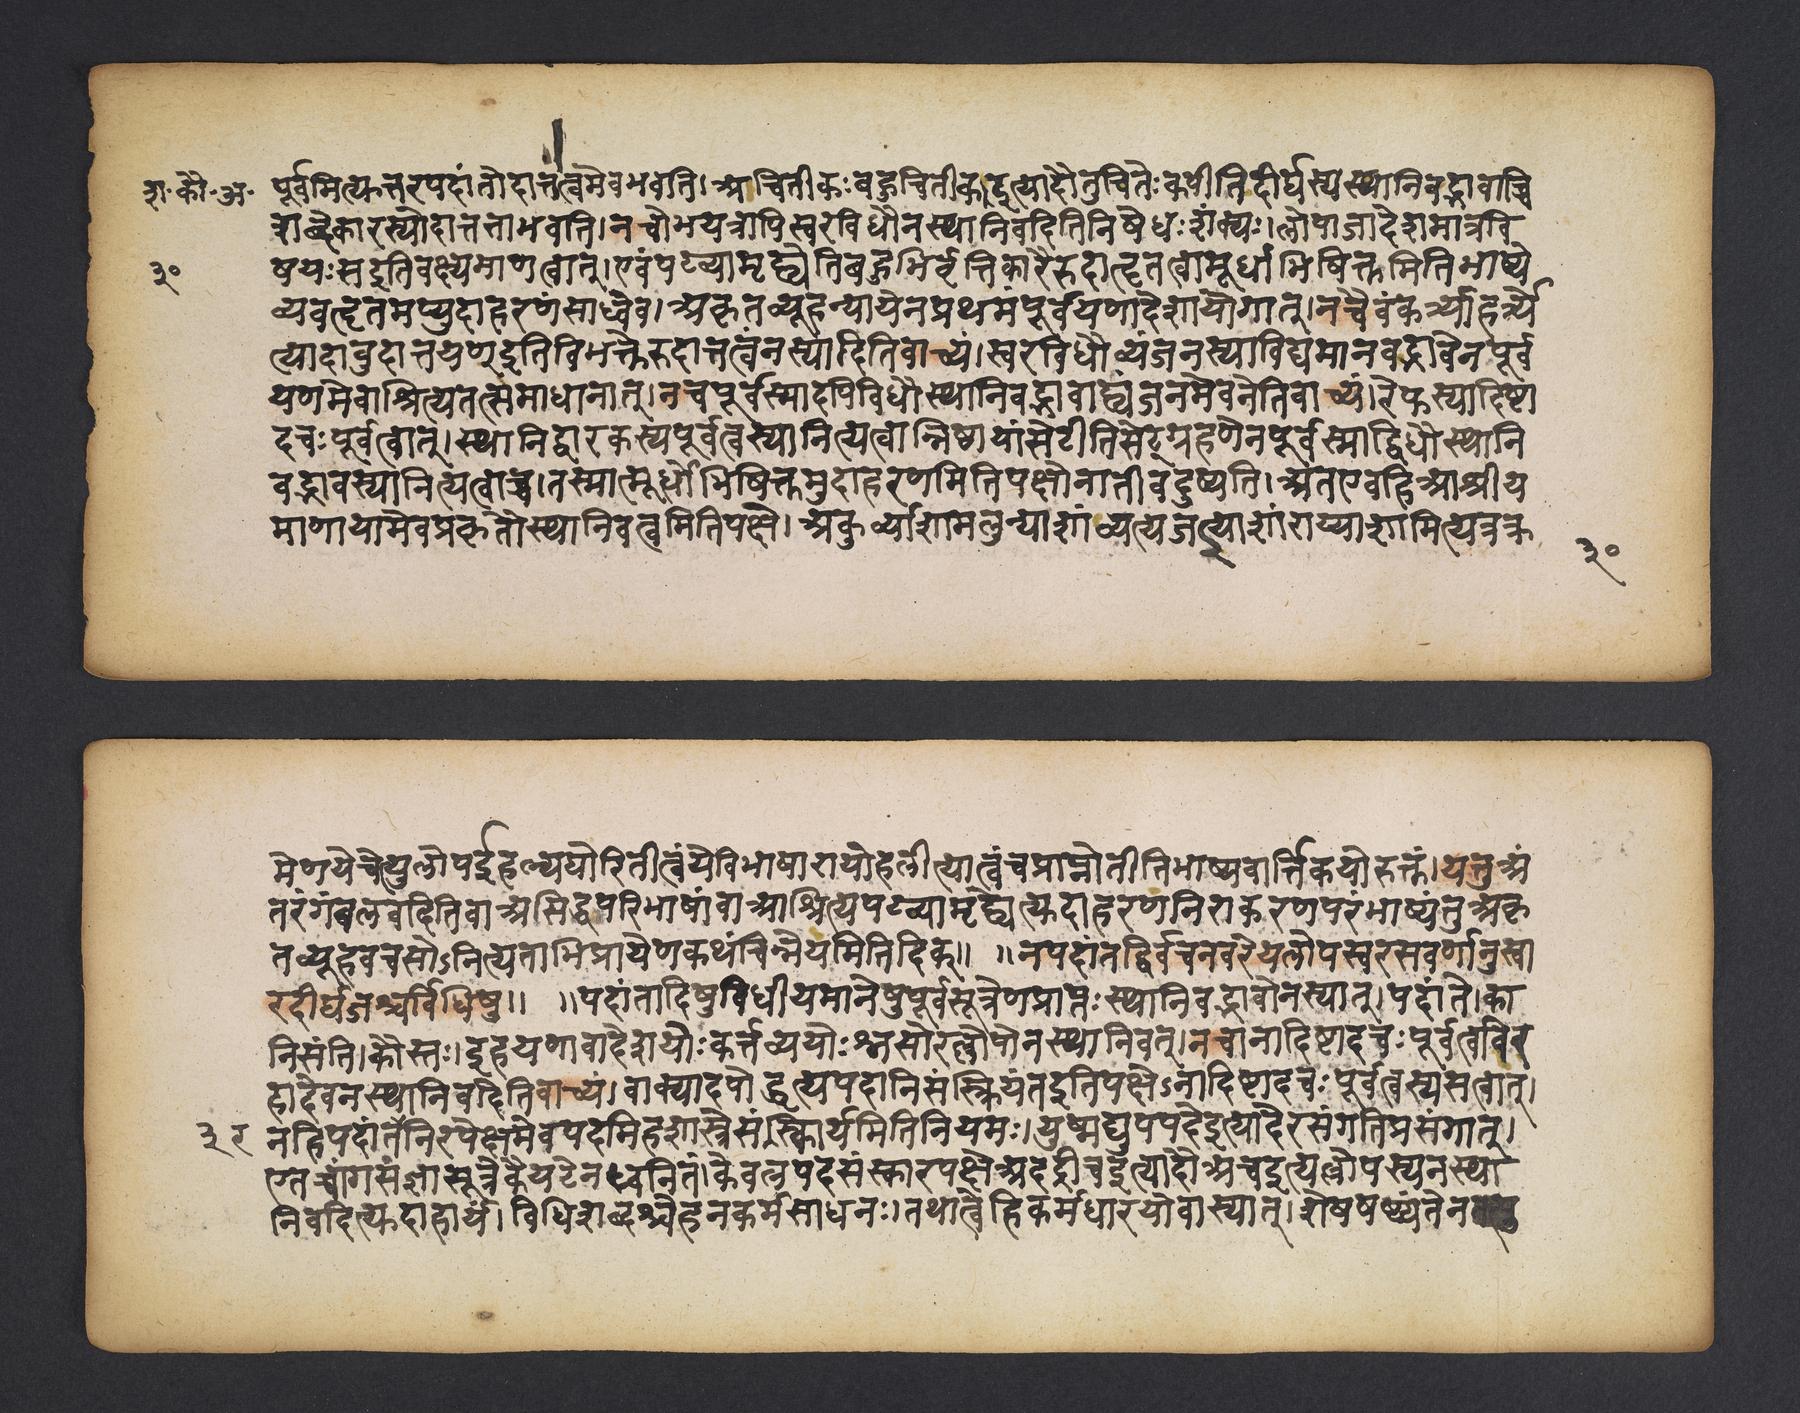 श. कौ. अ.
३०
पूर्वमित्युत्तरपदांतोदात्तत्वमेवभवति। अचितीकः बहुचितीक इत्यादौतुचितेः कपीतिदीर्घस्यस्थानिवद्भावाच्चि
शब्दैकारस्योदात्तत्ताभवति। नचोभयत्रापिस्वरविधौनस्थानिवदितिनिषेधः शंक्यः। लोपाजादेशमात्रवि
षयः सइतिवक्ष्यमाणत्वात्। एवंपट्व्यामृद्व्येतिबहुभिर्वृत्तिकारैरुदाहृतत्वामूर्धाभिषिक्तमितिभाष्ये
व्यवहृतमप्युदाहरणंसाध्वेव। अकृतव्यूहन्यायेनप्रथमंपूर्वयणादेशायोगात्। नचैवंकर्त्र्याहर्त्र्ये
त्यादावुदात्तयण्इतिविभक्तेरुदात्तत्वंनस्यादितिवाच्यं। स्वरविधौव्यंजनस्याविद्यमानवद्भावेनपूर्व
यणमेवाश्रित्यतत्समाधानात्। नचपूर्वस्मादपिविधौस्थानिवद्भावाद्व्यंजनमेवनेतिवाच्यं। रेफस्यादिष्टा
दचः पूर्वत्वात्। स्थानिद्वारकस्यपूर्वत्वस्यानित्यत्वान्निष्ठायांसेटीतिसेट्ग्रहणेनपूर्वस्माद्विधौस्थानि
वद्भावस्यानित्यत्वाच्च। तस्मात्मूर्धाभिषिक्तमुदाहरणमितिपक्षोनातीवदुष्यति। अतएवहिआश्रीय
माणायामेवप्रकृतौस्थानिवत्वमितिपक्षे। अकुर्व्याशामलुन्याशांव्यत्यजत्याशांराय्याशामित्यत्रक्र
३०
मेणयेचेत्युलोपईहल्यघोरितीत्वंयेविभाषारायोहलीत्यात्वंचप्राप्नोतीतिभाष्यवार्त्तिकयोरुक्तं। यत्तुअं
तरंगंबलवदितिवाअसिद्धपरिभाषांवाआश्रित्यपट्व्यामृद्व्येत्युदाहरणनिराकरणपरंभाष्यंतुअकृ
तव्यूहवचसोऽनित्यताभिप्रायेणकथंचिन्नेयमितिदिक्॥ ॥नपदांतद्विर्वचनवरेयलोपस्वरसवर्णानुस्वा
रदीर्घजश्चर्विधिषु॥ ॥पदांतादिषुविधीयमानेषुपूर्वसूत्रेणप्राप्तः स्थानिवद्भावोनस्यात्। पदांते। का
निसंति। कौस्तः। इहयणावादेशयोः कर्त्तव्ययोः श्नसोरल्लोपोनस्थानिवत्। नचानादिष्टादचः पूर्वत्वविर
हादेवनस्थानिवदितिवाच्यं। वाक्यादपोद्धृत्यपदानिसंस्क्रियंतइतिपक्षेऽनादिष्टादचः पूर्वत्वस्यसत्वात्।
३१
नहिपदांतंनिरपेक्षमेवपदमिहशास्त्रेसंस्कार्यमितिनियमः। युष्मद्युपपदेइत्यादेरसंगतिप्रसंगात्।
एतच्चांगसंज्ञासूत्रेकैयटेनध्वनितं। केवलपदसंस्कारपक्षेअदद्रीचइत्यादौअचइत्यल्लोपस्यनस्था
निवदित्युदाहार्यं। विधिशब्दश्चेहनकर्मसाधनः। तथात्वेहिकर्मधारयोवास्यात्। शेषषष्ठ्यंतेन